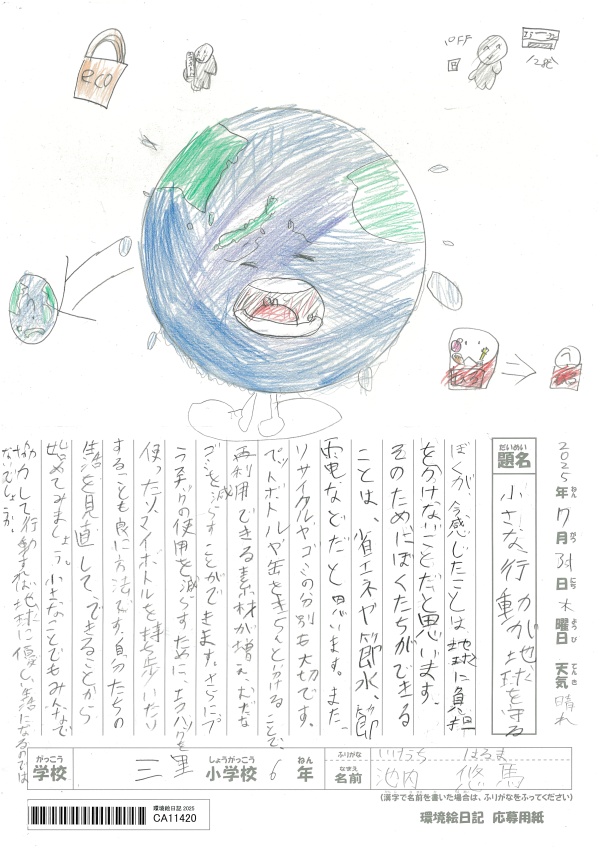 eco
10FF
回
128円
2025年7月31日木曜日 天気晴れ
題名 小さな行動が地球を守る
ぼくが、今感じたことは地球に負担
を分けないことだと思います。
そのためにぼくたちができる
ことは、省エネや節水、節
電などだと思います。また、
リサイクルやゴミの分別も大切です。
ペットボトルや缶をきちんと分けることで、
再利用できる素材が増え、むだな
ゴミを減らすことができます。さらにプ
ラスチックの使用を減らすために、エコバッグを
使ったりマイボトルを持ち歩いたり
することも良い方法です。自分たちの
生活を見直して、できることから
始めてみましょう。小さなことでもみんなで
協力して行動すれば地球に優しい生活になるのでは
ないでしょうか。
がっこう 学校 三里 しょうがっこう 小学校 6 ねん 年
ふりがな いけうち はるま
なまえ 名前 池内 悠馬
(漢字で名前を書いた場合は、ふりがなをふってください)
環境絵日記 2025
CA11420
環境絵日記 応募用紙